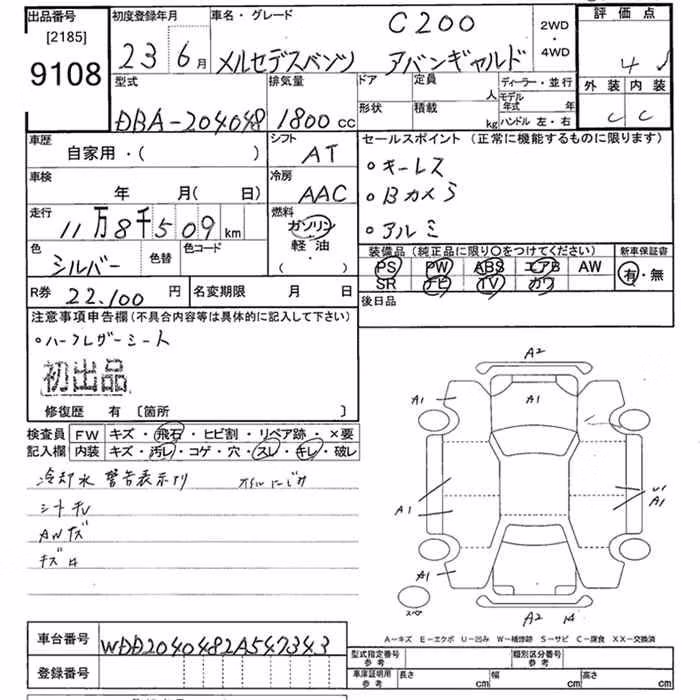 出品番号 初度登録年月 車名・グレード C200 2WD・4WD 評価点
[2185]
9108 23 6月 メルセデスベンツ アバンギャルド 4
外装 内装
C C
型式 排気量 ドア 定員 人 ディーラー・並行
形状 積載 kg モデル年式 年
ハンドル 左・右
DBA-204048 1800cc
車歴 シフト セールスポイント(正常に機能するものに限ります)
自家用・( ) AT
・キーレス
車検 冷房
年 月( 日) AAC
・Bカメラ
走行 燃料
11万8千509km ガソリン
・アルミ
軽油
・( )
色 色替 色コード
シルバー
装備品(純正品に限り〇をつけてください) 新車保証書
PS PW ABS エアB AW 有・無
SR ナビ TV カワ
R券 22.100円 名変期限 月 日
後日品
注意事項申告欄(不具合内容等は具体的に記入して下さい)
・ハーフレザーシート
初出品
修復歴 有 [箇所 ]
検査員 FW キズ・飛石・ヒビ割・リペア跡・×要
記入欄 内装 キズ・汚レ・コゲ・穴・スレ・キレ・破レ
冷却水 警告表示アリ オイルにじみ
A2
A1 A1
A1 A1
A1
スペア
A2
A-キズ E-エクボ U-凹み W-補修跡 S-サビ C-腐食 XX-交換済
車台番号 WDD2040482A547343
登録番号
型式指定番号 参考 類別区分番号 参考
車庫証明用 参考 長さ cm 幅 cm 高さ cm